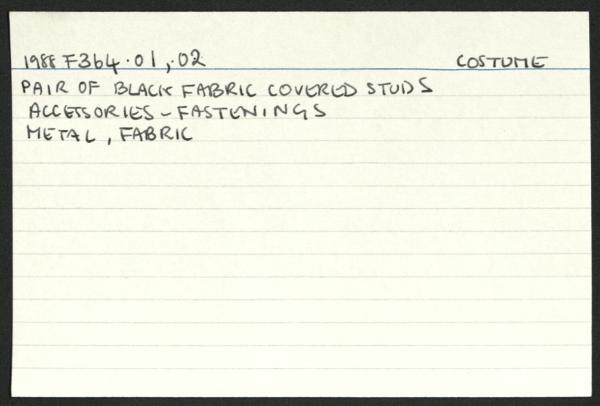 1988 F364.01,.02 COSTUME
PAIR OF BLACK FABRIC COVERED STUDS
ACCESSORIES - FASTENINGS
METAL, FABRIC